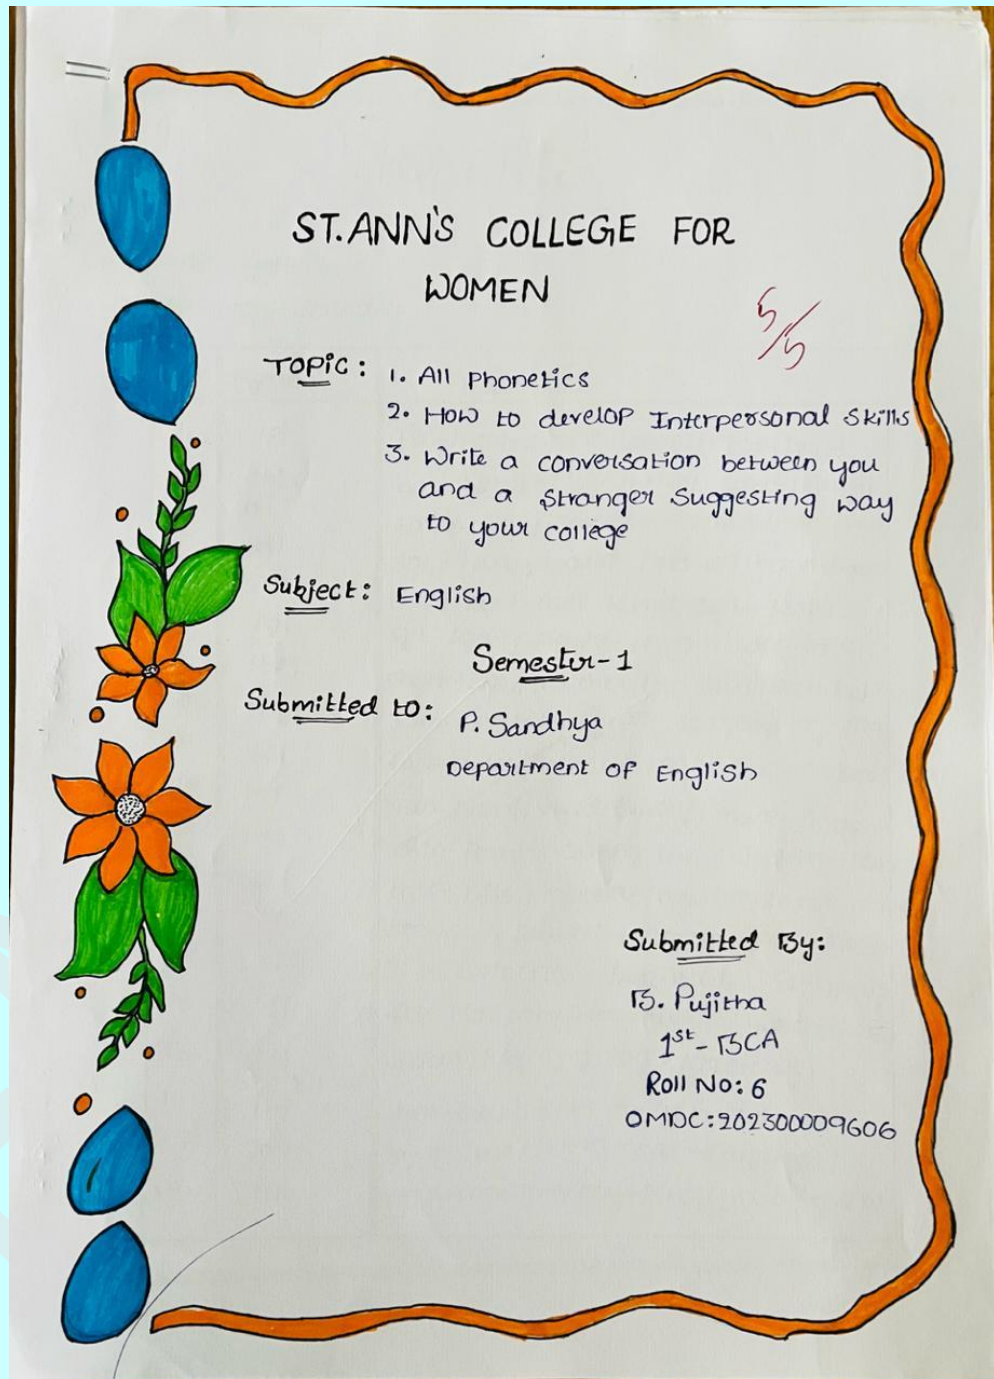 ST.ANN'S COLLEGE FOR
WOMEN
5/5
Topic: 1. All Phonetics
2. How to develop Interpersonal Skills
3. Write a conversation between you
and a stranger suggesting way
to your college
Subject: English
Semester-1
Submitted to: P. Sandhya
Department of English
Submitted By:
B. Pujitha
1st - BCA
Roll No: 6
OMDC:202300009606